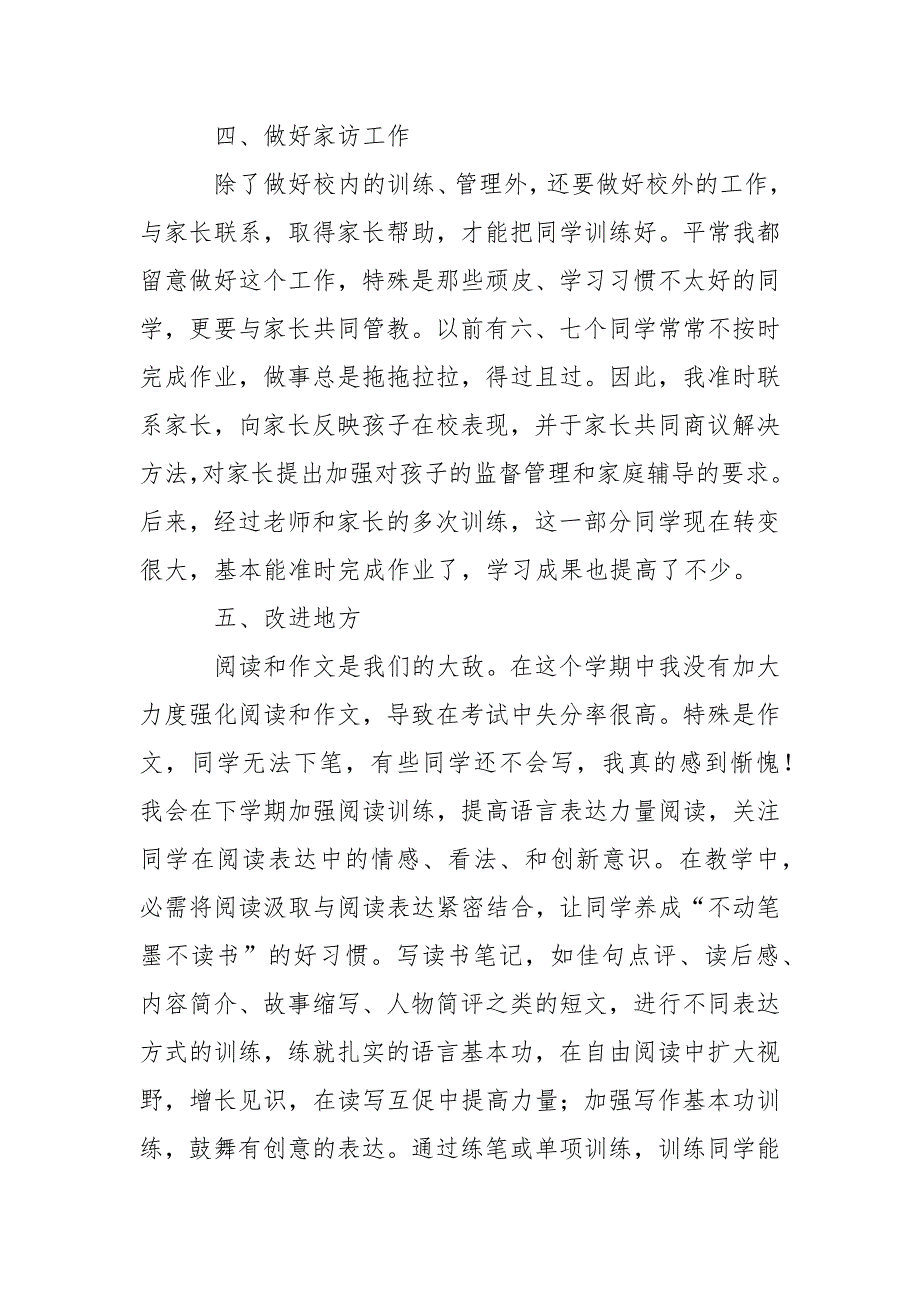 四、做好家访工作
除了做好校内的训练、管理外，还要做好校外的工作，
与家长联系，取得家长帮助，才能把同学训练好。平常我都
留意做好这个工作，特殊是那些顽皮、学习习惯不太好的同
学，更要与家长共同管教。以前有六、七个同学常常不按时
完成作业，做事总是拖拖拉拉，得过且过。因此，我准时联
系家长，向家长反映孩子在校表现，并于家长共同商议解决
方法，对家长提出加强对孩子的监督管理和家庭辅导的要求。
后来，经过老师和家长的多次训练，这一部分同学现在转变
很大，基本能准时完成作业了，学习成果也提高了不少。
五、改进地方
阅读和作文是我们的大敌。在这个学期中我没有加大
力度强化阅读和作文，导致在考试中失分率很高。特殊是作
文，同学无法下笔，有些同学还不会写，我真的感到惭愧！
我会在下学期加强阅读训练，提高语言表达力量阅读，关注
同学在阅读表达中的情感、看法、和创新意识。在教学中，
必需将阅读汲取与阅读表达紧密结合，让同学养成“不动笔
墨不读书”的好习惯。写读书笔记，如佳句点评、读后感、
内容简介、故事缩写、人物简评之类的短文，进行不同表达
方式的训练，练就扎实的语言基本功，在自由阅读中扩大视
野，增长见识，在读写互促中提高力量；加强写作基本功训
练，鼓舞有创意的表达。通过练笔或单项训练，训练同学能